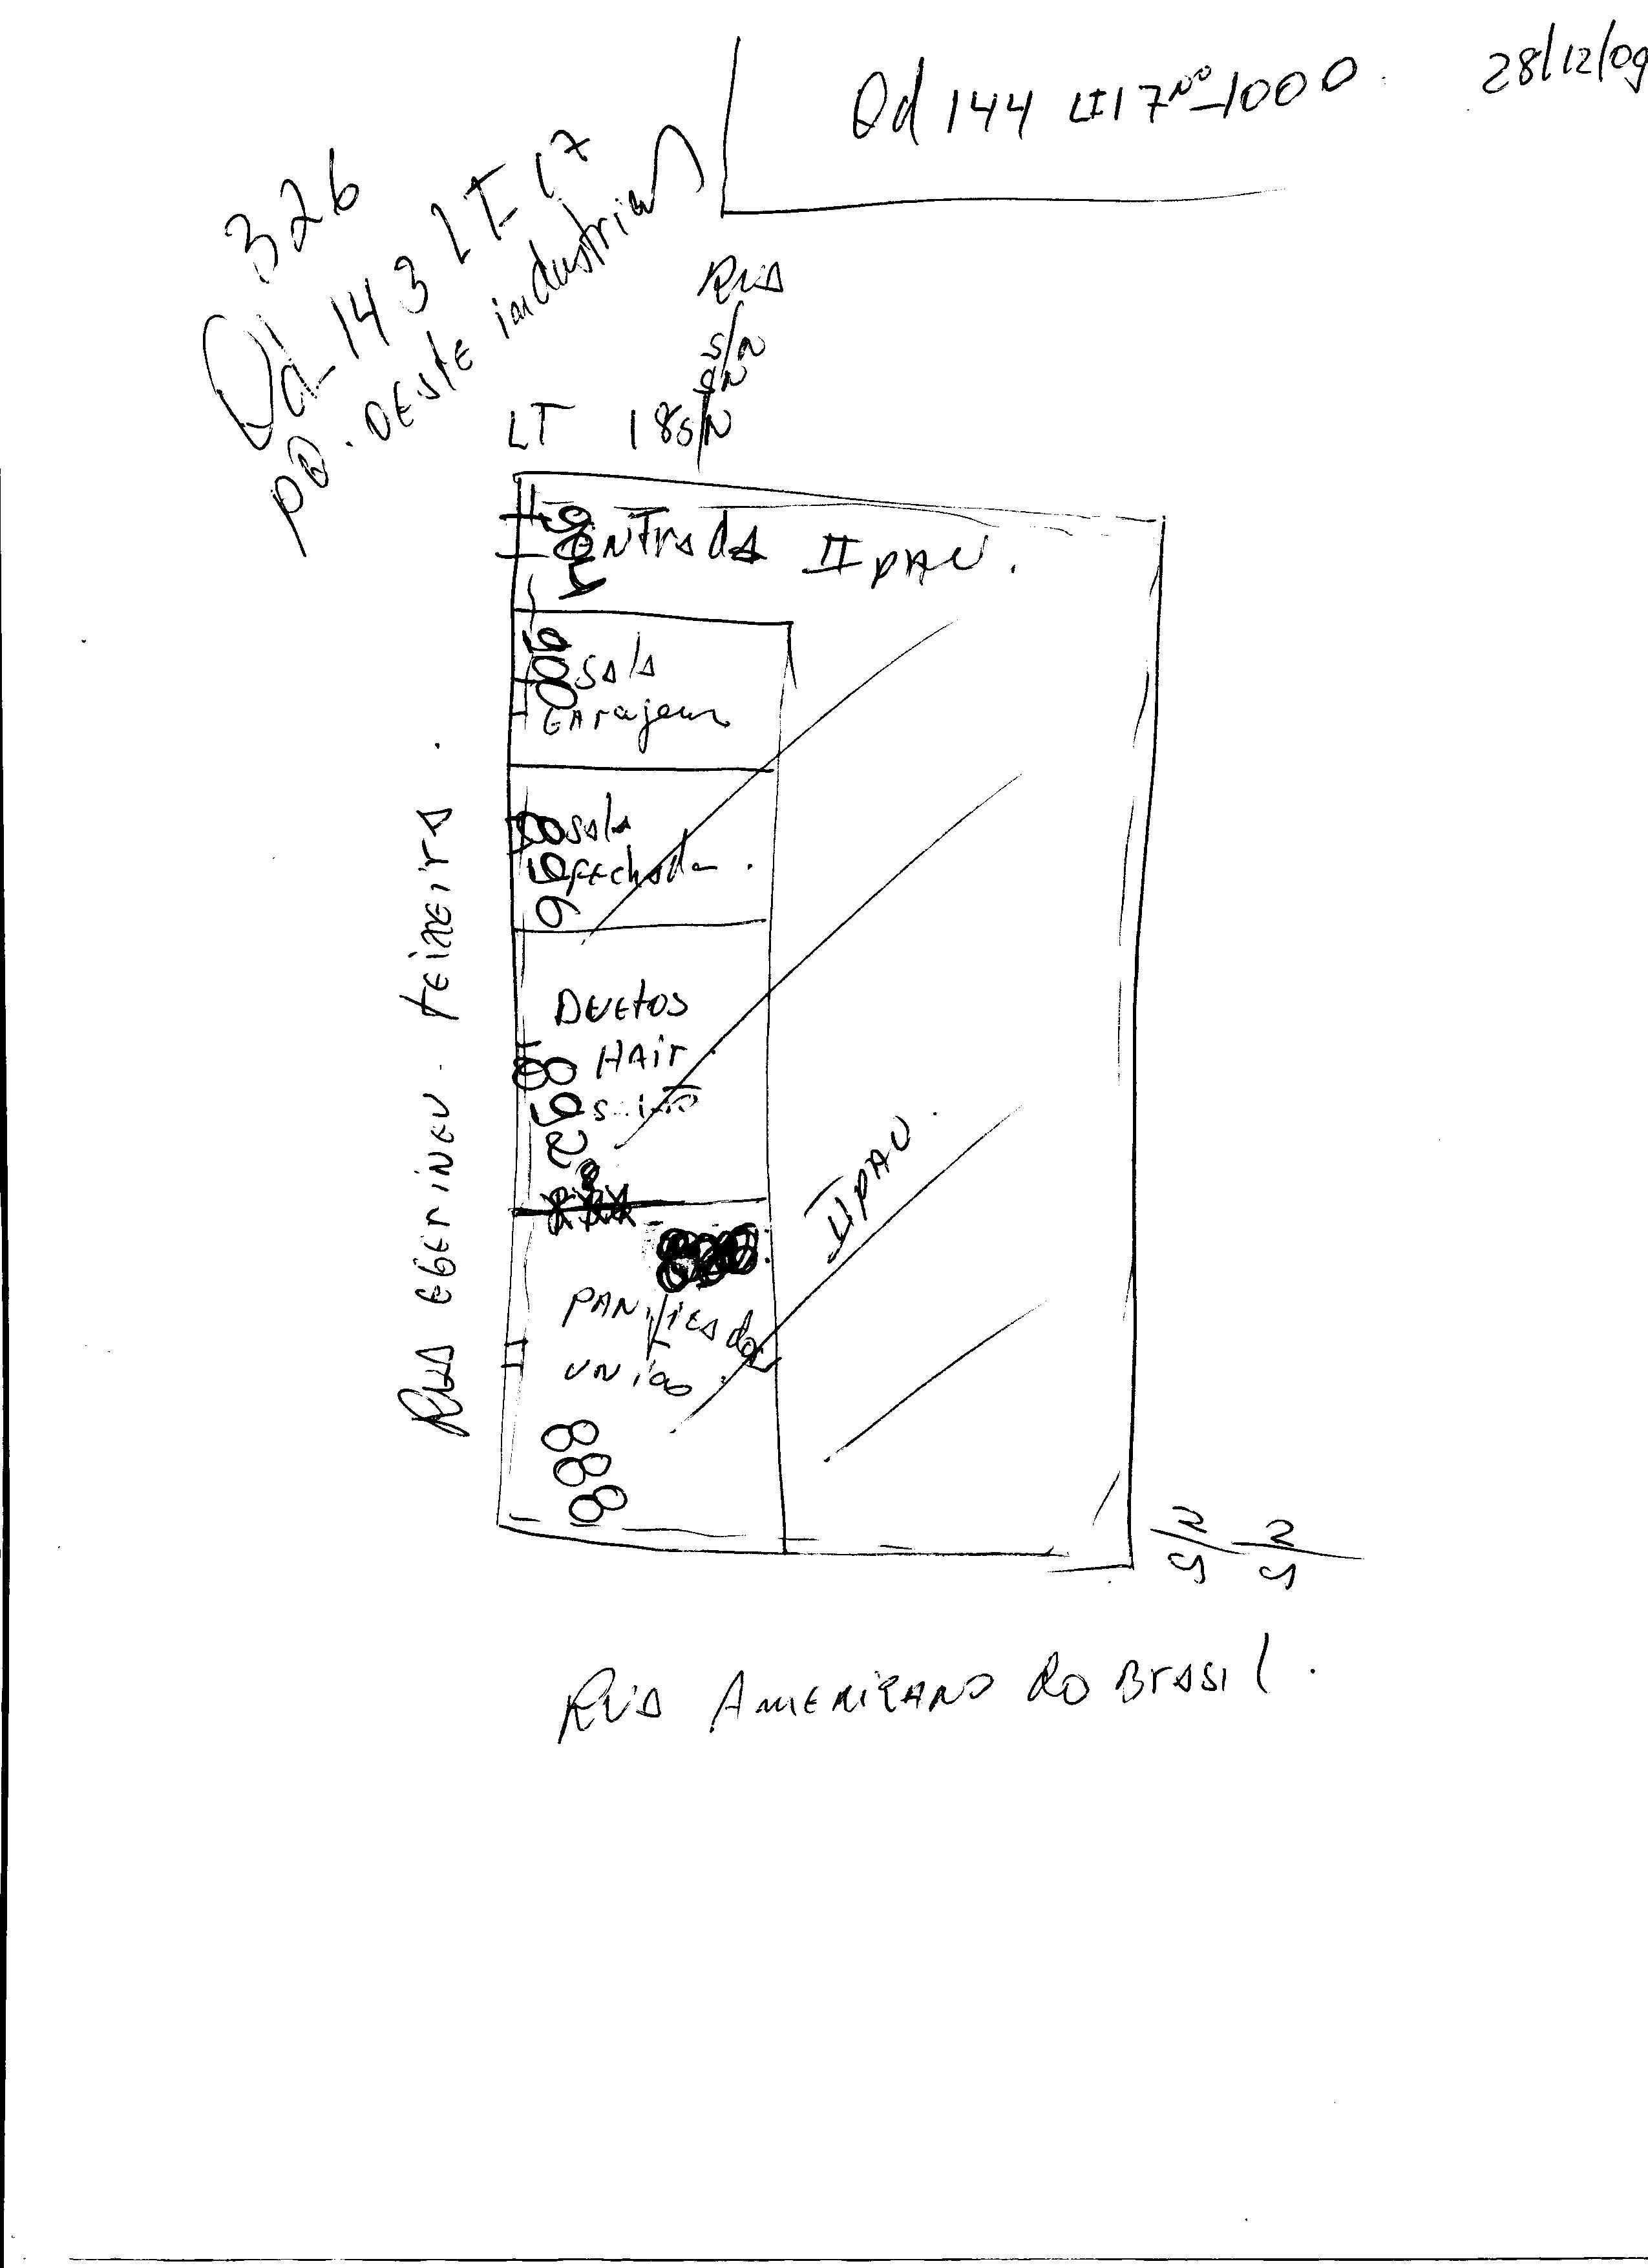 28/12/09
Qd 144 LT 17 Nº 1000
326
Qd 143 LT 17
PQ. OESTE industrial
RUA
S/N
LT 18 S/N
904
ENTRADA II PAV.
900
SALA
896
SALA
FECHADA.
DUETOS
HAIR
892
II PAV.
UNIÃO.
888
RUA EGERINEU TEIXEIRA.
S/N
RUA AMERICANO DO BRASIL.